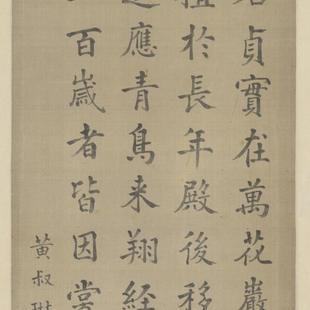 貞實在萬花巖
於長年殿後移
應青鳥来翔経
百歲者皆因嘗
黃叔琳